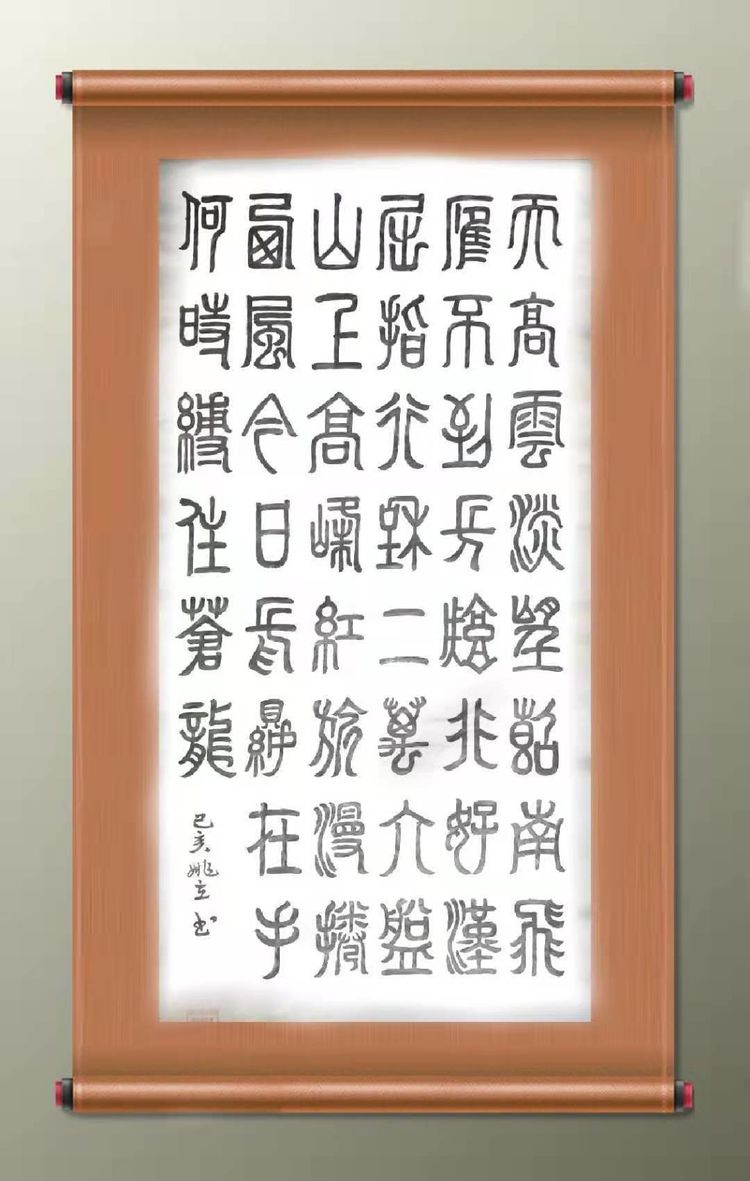 天高雲淡望斷南飛
雁不到長城非好漢
屈指行程二萬六盤
山上高峰紅旗漫捲
西風今日長纓在手
何時縛住蒼龍
己亥姚立书